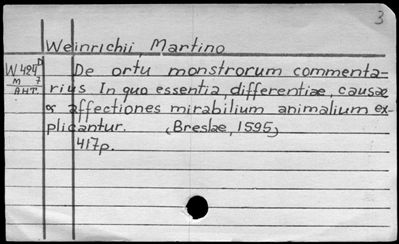 3
Weinrichii, Martino
W424D De ortu monstrorum commenta-
M 7
АНТ. rius In quo essentia, differentiae, causae
& affectiones mirabilium animalium ex-
plicantur. (Breslae, 1595)
417p.